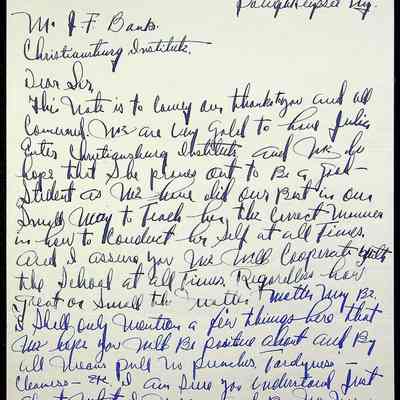 Poughkeepsie Ny.
Mr. J F. Banks.
Christiansburg Institute.
Dear Sir,
This Note is to Convey our thanks to you and all
Concerned. We are very glad to have Julia
Enter Christiansburg Institute and We do
hope that She proves out to Be a good
Student as We have did our Best in our
Small Way to Teach her the Correct Manner
in how to Conduct her Self at all Times.
And I assure you We Will Cooperate With
the School at all Times. Regardless how
great or Small the matter matter May Be.
I Shall only Mention a few things here that
We hope you Will Be positive about and By
all Means pull No punches. Tardyness —
Cleanness — etc. I am Sure you understand Just